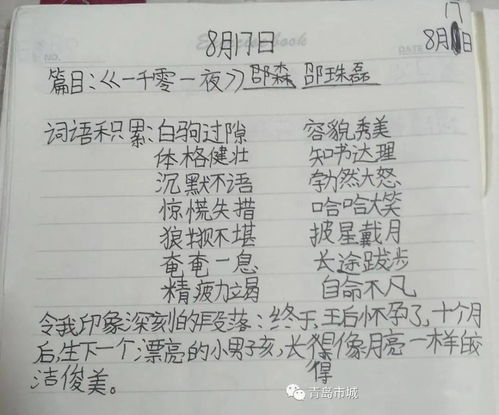 17
8月17日 8月日
篇目:《一千零一夜》邵森 邵珠磊
词语积累:白驹过隙 容貌秀美
体格健壮 知书达理
沉默不语 勃然大怒
惊慌失措 哈哈大笑
狼狈不堪 披星戴月
奄奄一息 长途跋涉
精疲力竭 自命不凡
令我印象深刻的段落:终于,王后怀孕了,十个月
后,生下一个漂亮的小男孩,长得像月亮一样皎
得
洁俊美。
青岛市城